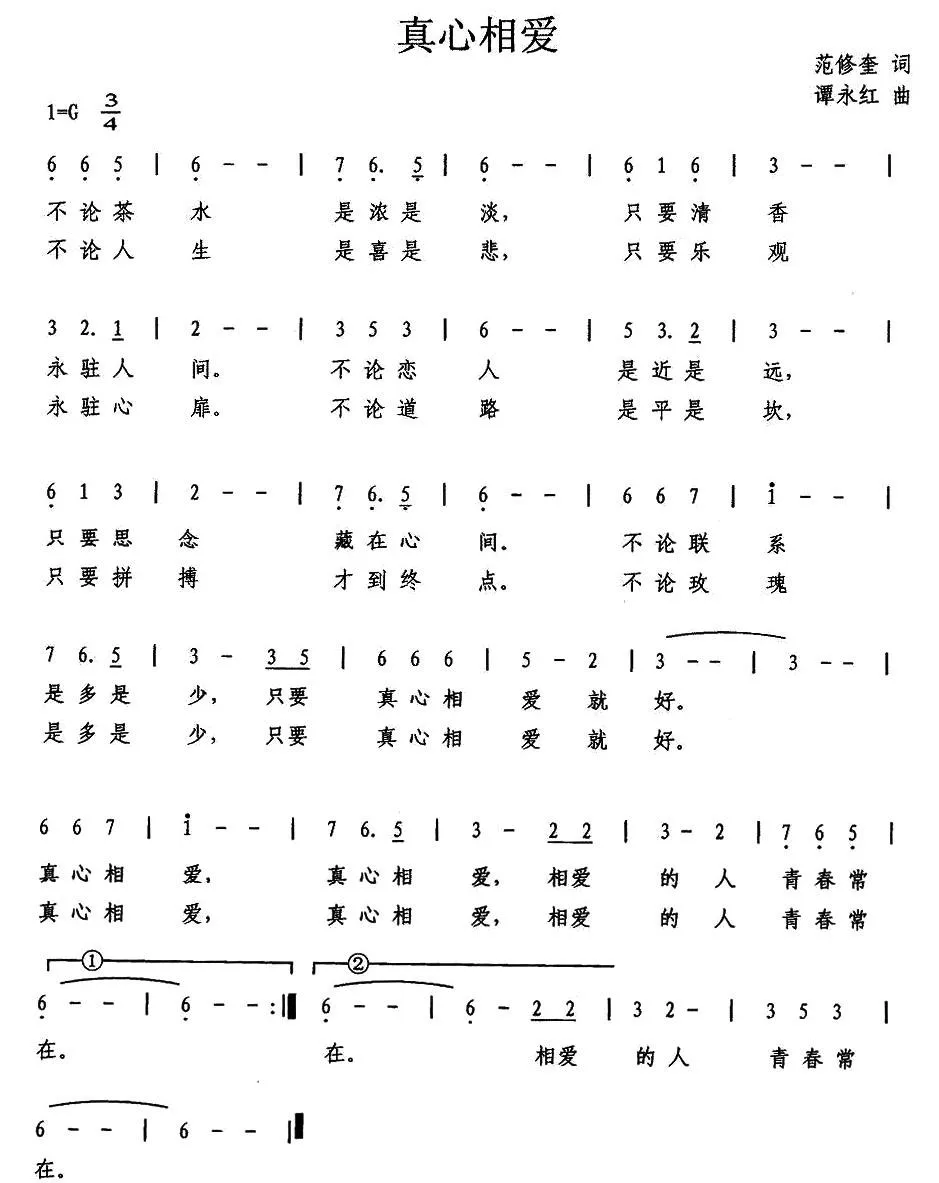 真心相爱
范修奎 词
谭永红 曲
1=G 3/4
6̣ 6̣ 5̣ | 6̣ - - | 7̣ 6̣. 5̣ | 6̣ - - | 6̣ 1 6̣ | 3 - - |
不论茶 水 是浓是 淡, 只要清 香
不论人 生 是喜是 悲, 只要乐 观
3 2. 1 | 2 - - | 3 5 3 | 6 - - | 5 3. 2 | 3 - - |
永驻人 间。 不论恋 人 是近是 远,
永驻心 扉。 不论道 路 是平是 坎,
6̣ 1 3 | 2 - - | 7̣ 6̣. 5̣ | 6̣ - - | 6 6 7 | i - - |
只要思 念 藏在心 间。 不论联 系
只要拼 搏 才到终 点。 不论玫 瑰
7 6. 5 | 3 - 3 5 | 6 6 6 | 5 - 2 | 3 - - | 3 - - |
是多是 少, 只要 真心相 爱 就 好。
是多是 少, 只要 真心相 爱 就 好。
6 6 7 | i - - | 7 6. 5 | 3 - 2 2 | 3 - 2 | 7̣ 6̣ 5̣ |
真心相 爱, 真心相 爱, 相爱 的 人 青春常
真心相 爱, 真心相 爱, 相爱 的 人 青春常
① ②
6̣ - - | 6̣ - - :| 6̣ - - | 6̣ - 2 2 | 3 2 - | 3 5 3 |
在。 在。 相爱 的人 青春常
6 - - | 6 - - |
在。